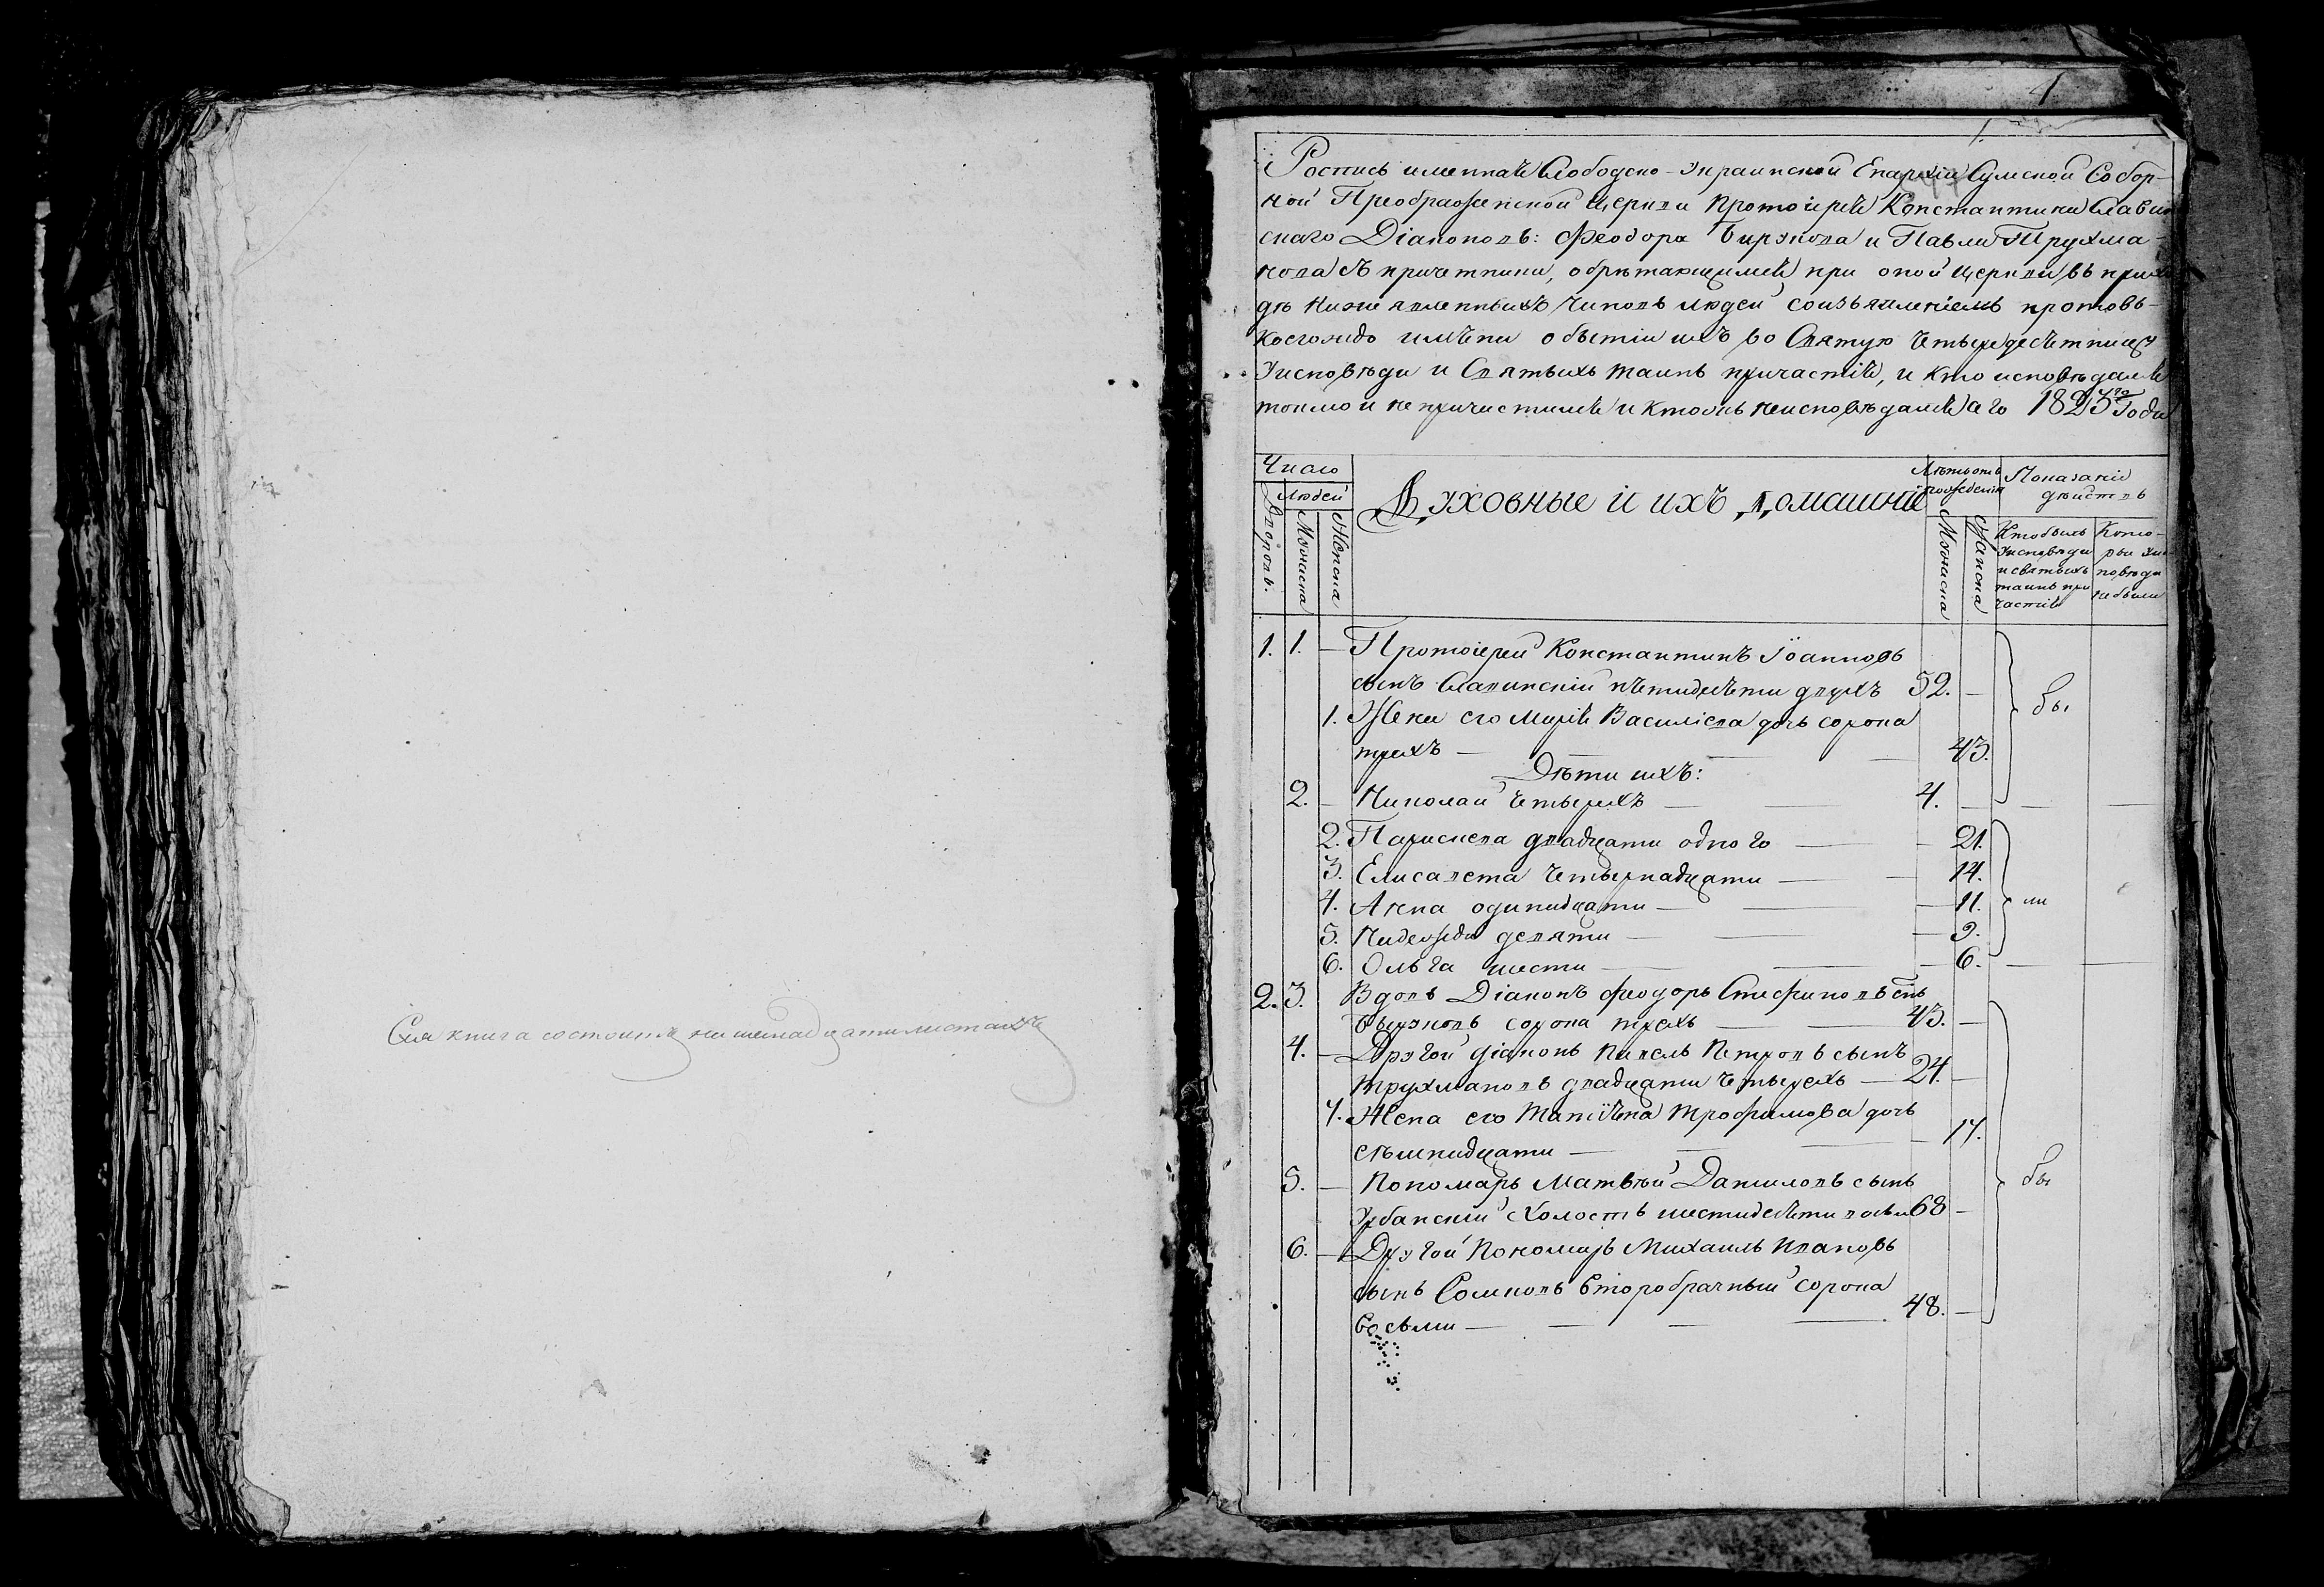 Сия книга состоитъ на шенадцати листахъ
1
1.
Роспись именная Слободско-Украинской Епархіи Сумской Собор-
ной Преображенской церкви Протоіерея Константина Славин
скаго Діаконовъ: Феодора Бирукова и Павла Трухма-
нова съ причетники, обрѣтающимся при оной церкви въ прихо
дѣ ниже явленныхъ чиновъ людей, соизъявленіемъ противъ
коегождо имѣни о бытіи ихъ во Святую четыредесѣтницу
Уисповѣди и Святыхъ таинъ причастія, и кто исповѣдался
токмо и не причастился и ктожъ неисповѣдался сего 1825го Года
Число
Людей
Дворовъ.
Мужеска
Женска
Духовные и ихъ домашніе
Лѣтъ отъ рожденія
Мужеска
Женска
Показаніе дѣйствъ
Кто былъ Уисповѣди и святыхъ таинъ причастія
Кото-рыи Уисповѣди небыли
1. 1. — Протоіерей Константинъ Іоанновъ
сынъ Славинскій пѣтидесѣти двухъ 52. —
1. Жена его Марія Василіева дочь сорока
трехъ — 43.
бы
Дѣти ихъ:
2. — Николай четырехъ — 4. —
2. Параскева двадцати одного — 21.
3. Елисавета четырнадцати — 14.
4. Анна одинадцати — 11.
ли
5. Надежда девяти — 9.
6. Ольга шести — 6.
2. 3. Вдовъ Діаконъ Феодоръ Стефановъ снъ
Бируковъ сорока трехъ — 43. —
4. — Другой діаконъ Павелъ Петровъ сынъ
Трухмановъ двадцати четырехъ — 24. —
7. Жена его Татіяна Трофимова дочь
сѣмнадцати — 17.
5. — Пономарь Матвѣй Даниловъ сынъ
бы
Урбанскій Холостъ шестидесѣти восьми 68 —
6. — Другой Пономарь Михаилъ Ивановъ
сынъ Сомковъ второбрачный сорока
восьми — 48. —